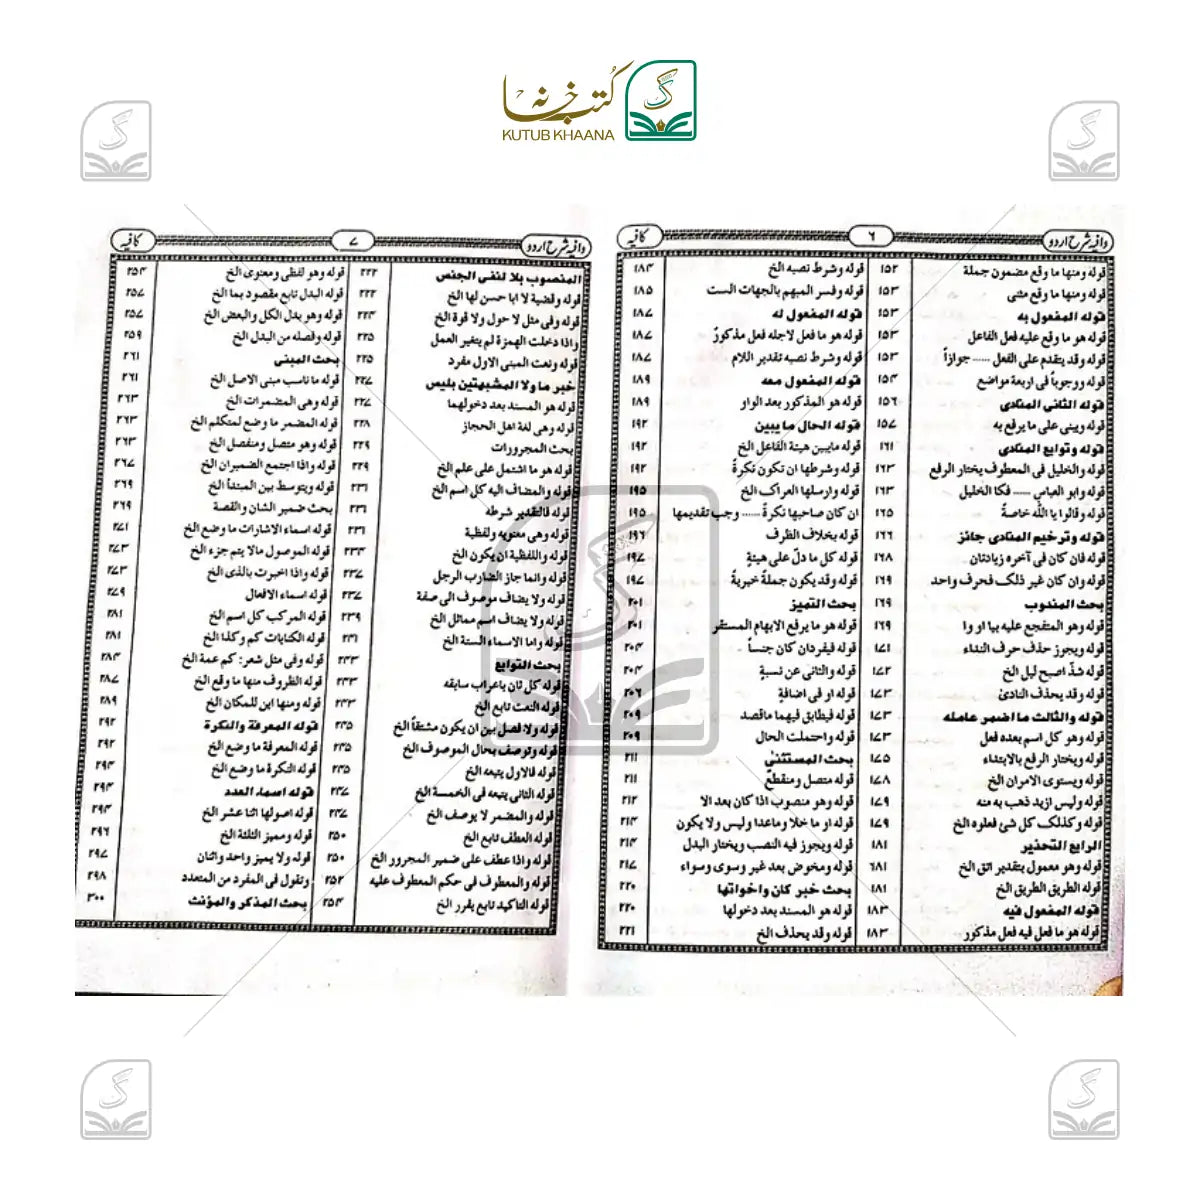 کتب خانہ
KUTUB KHAANA
وافیہ شرح اردو
۶
کافیہ
قوله ومنها ما وقع مضمون جملة ۱۵۲
قوله ومنها ما وقع مثنى ۱۵۳
قوله المفعول به ۱۵۳
قوله هو ما وقع عليه فعل الفاعل ۱۵۳
قوله وقد يتقدم على الفعل ...... جوازاً ۱۵۳
قوله ووجوباً فى اربعة مواضع ۱۵۴
قوله الثانى المنادى ۱۵۶
قوله ويبنى على ما يرفع به ۱۵۷
قوله وتوابع المنادى ۱۶۱
قوله والخليل فى المعطوف يختار الرفع ۱۶۳
قوله وابو العباس ...... فكا الخليل ۱۶۳
قوله وقالوا يا الله خاصةً ۱۶۵
قوله وترخيم المنادى جائز ۱۶۶
قوله فان كان فى آخره زيادتان ۱۶۸
قوله وان كان غير ذلك فحرف واحد ۱۶۹
بحث المندوب ۱۶۹
قوله وهو المتفجع عليه بيا او وا ۱۶۹
قوله ويجوز حذف حرف النداء ۱۷۱
قوله شذّ اصبح ليل الخ ۱۷۲
قوله وقد يحذف النادئ ۱۷۳
قوله والثالث ما اضمر عامله ۱۷۳
قوله وهو كل اسم بعده فعل ۱۷۳
قوله ويختار الرفع بالابتداء ۱۷۵
قوله ويستوى الامران الخ ۱۷۸
قوله وليس ازيد ذهب به منه ۱۷۹
قوله وكذلك كل شئ فعلوه الخ ۱۷۹
الرابع التحذير ۱۸۱
قوله وهو معمول بتقدير اتق الخ ۶۸۱
قوله الطريق الطريق الخ ۱۸۱
قوله المفعول فيه ۱۸۳
قوله هو ما فعل فيه فعل مذكور ۱۸۳
قوله وشرط نصبه الخ ۱۸۴
قوله وفسر المبهم بالجهات الست ۱۸۵
قوله المفعول له ۱۸۷
قوله هو ما فعل لاجله فعل مذكورٌ ۱۸۷
قوله وشرط نصبه تقدير اللام ۱۸۷
قوله المفعول معه ۱۸۹
قوله هو المذكور بعد الواو ۱۸۹
قوله الحال ما يبين ۱۹۲
قوله مايبين هيئة الفاعل الخ ۱۹۲
قوله وشرطها ان تكون نكرةً ۱۹۲
قوله وارسلها العراك الخ ۱۹۵
ان كان صاحبها نكرةً ...... وجب تقديمها ۱۹۵
قوله بخلاف الظرف ۱۹۶
قوله كل ما دلّ على هيئةٍ ۱۹۷
قوله وقد يكون جملةً خبريةً ۱۹۷
بحث التميز ۲۰۱
قوله هو ما يرفع الابهام المستقر ۲۰۱
قوله فيفردان كان جنساً ۲۰۴
قوله والثانى عن نسبةٍ ۲۰۴
قوله او فى اضافةٍ ۲۰۶
قوله فيطابق فيهما ماقصد ۲۰۹
قوله واحتملت الحال ۲۰۹
بحث المستثنىٰ ۲۱۱
قوله متصل ومنقطعٌ ۲۱۱
قوله وهو منصوب اذا كان بعد الا ۲۱۲
قوله او ما خلا وماعدا وليس ولا يكون ۲۱۴
قوله ويجوز فيه النصب ويختار البدل ۲۱۴
قوله ومخوض بعد غير وسوى وسواء ۲۱۷
بحث خبر كان واخواتها ۲۲۰
قوله هو المسند بعد دخولها ۲۲۰
قوله وقد يحذف الخ ۲۲۱
وافیہ شرح اردو
۷
کافیہ
المنصوب بلا لنفى الجنس ۲۲۲
قوله وقضية لا ابا حسن لها الخ ۲۲۲
قوله وفى مثل لا حول ولا قوة الخ ۲۲۴
واذا دخلت الهمزة لم يتغير العمل ۲۲۵
قوله ونعت المبنى الاول مفرد ۲۲۵
خبر ما ولا المشبهتين بليس ۲۲۷
قوله هو المسند بعد دخولهما ۲۲۷
قوله وهى لغة اهل الحجاز ۲۲۸
بحث المجرورات ۲۲۹
قوله هو ما اشتمل على علم الخ ۲۲۹
قوله والمضاف اليه كل اسم الخ ۲۳۱
قوله فالتقدير شرطه ۲۳۱
قوله وهى معنوية ولفظية ۲۳۱
قوله واللفظية ان يكون الخ ۲۳۴
قوله وانما جاز الضارب الرجل ۲۳۷
قوله ولا يضاف موصوف الى صفة ۲۳۷
قوله ولا يضاف اسم مماثل الخ ۲۳۹
قوله واما الاسماء الستة الخ ۲۳۱
بحث التوابع ۲۴۳
قوله كل ثان باعراب سابقه ۲۴۳
قوله النعت تابع الخ ۲۴۳
قوله ولا فصل بين ان يكون مشتقاً الخ ۲۴۵
قوله وتوصف بحال الموصوف الخ ۲۴۵
قوله فالاول يتبعه الخ ۲۴۵
قوله الثانى يتبعه فى الخمسة الخ ۲۴۷
قوله والمضمر لا يوصف الخ ۲۴۷
قوله العطف تابع الخ ۲۵۰
قوله واذا عطف على ضمير المجرور الخ ۲۵۰
قوله والمعطوف فى حكم المعطوف عليه ۲۵۲
قوله التاكيد تابع يقرر الخ ۲۵۴
قوله وهو لفظى ومعنوى الخ ۲۵۴
قوله البدل تابع مقصود بما الخ ۲۵۷
قوله وهو بدل الكل والبعض الخ ۲۵۷
قوله وفصله من البدل الخ ۲۵۹
بحث المبنى ۲۶۱
قوله ما ناسب مبنى الاصل الخ ۲۶۱
قوله وهى المضمرات الخ ۲۶۳
قوله المضمر ما وضع لمتكلم الخ ۲۶۳
قوله وهو متصل ومنفصل الخ ۲۶۳
قوله واذا اجتمع الضميران الخ ۲۶۷
قوله ويتوسط بين المبتدأ الخ ۲۶۹
بحث ضمير الشان والقصة ۲۶۹
قوله اسماء الاشارات ما وضع الخ ۲۷۱
قوله الموصول مالا يتم جزء الخ ۲۷۳
قوله واذا اخبرت بالذى الخ ۲۷۳
قوله اسماء الافعال ۲۷۹
قوله المركب كل اسم الخ ۲۸۱
قوله الكنايات كم وكذا الخ ۲۸۱
قوله وفى مثل شعر: كم عمة الخ ۲۸۴
قوله الظروف منها ما وقع الخ ۲۸۷
قوله ومنها اين للمكان الخ ۲۸۹
قوله المعرفة والنكرة ۲۹۲
قوله المعرفة ما وضع الخ ۲۹۲
قوله النكرة ما وضع الخ ۲۹۴
قوله اسماء العدد ۲۹۴
قوله اصولها اثنا عشر الخ ۲۹۴
قوله ومميز الثلثة الخ ۲۹۶
قوله ولا يميز واحد واثنان ۲۹۷
وتقول فى المفرد من المتعدد ۲۹۸
بحث المذكر والمؤنث ۳۰۰